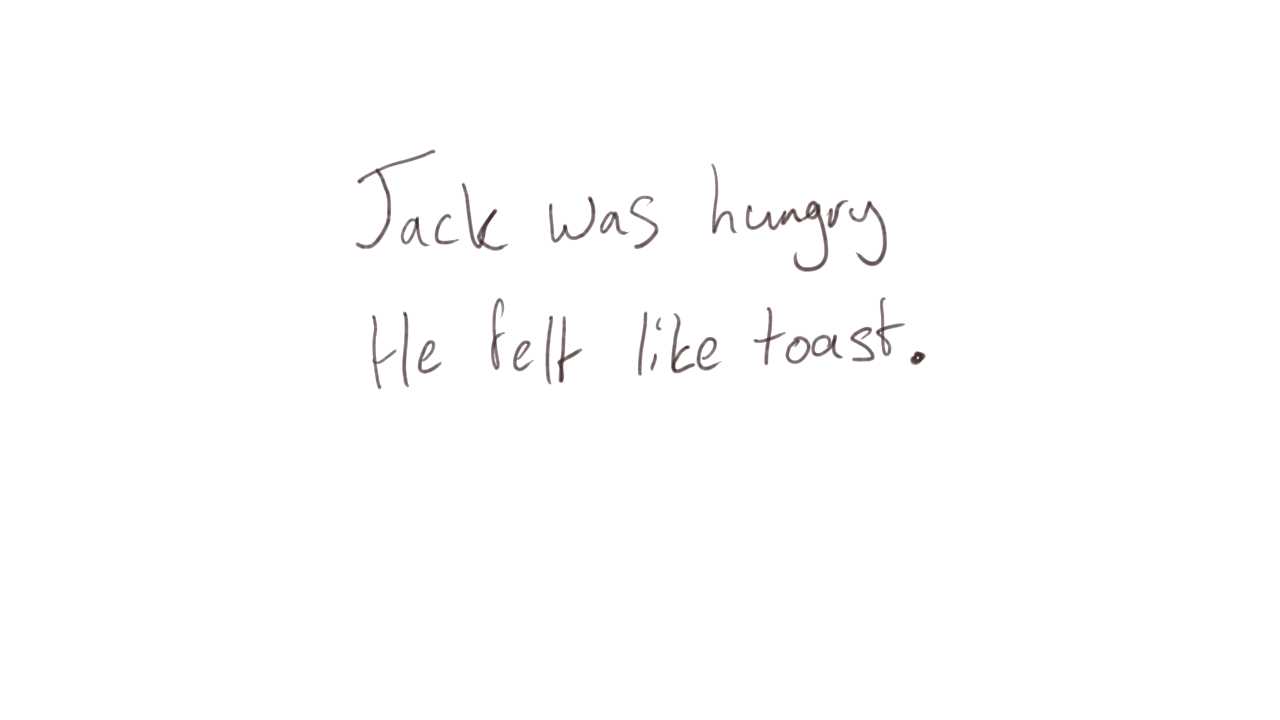 Jack was hungry
He felt like toast.